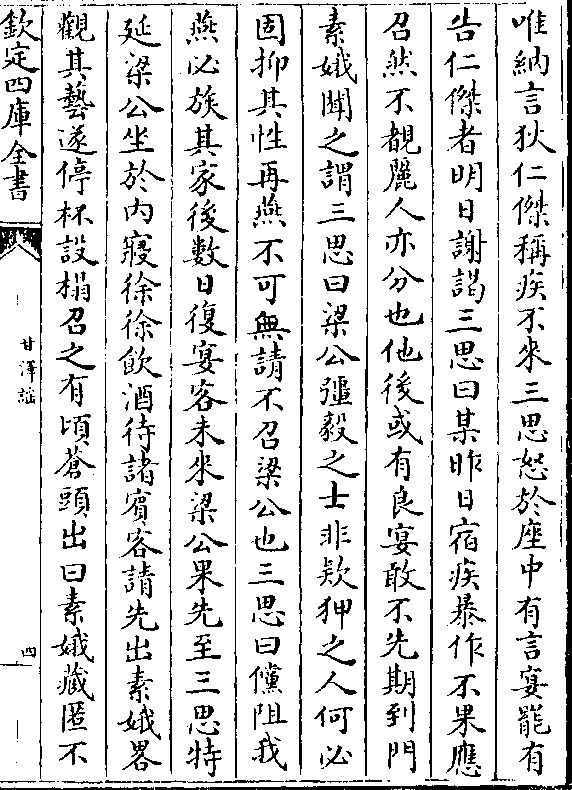 唯納言狄仁傑稱疾不來三思怒於座中有言宴罷有
告仁傑者明日謝謁三思曰某昨日宿疾暴作不果應
召然不覩麗人亦分也他後或有良宴敢不先期到門
素娥聞之謂三思曰梁公彊毅之士非欵狎之人何必
固抑其性再燕不可無請不召梁公也三思曰儻阻我
燕必族其家後數日復宴客未來梁公果先至三思特
延梁公坐於内寢徐徐飲酒待諸賓客請先出素娥畧
觀其藝遂停杯設榻召之有頃蒼頭出曰素娥藏匿不
欽定四庫全書
甘澤謡
四